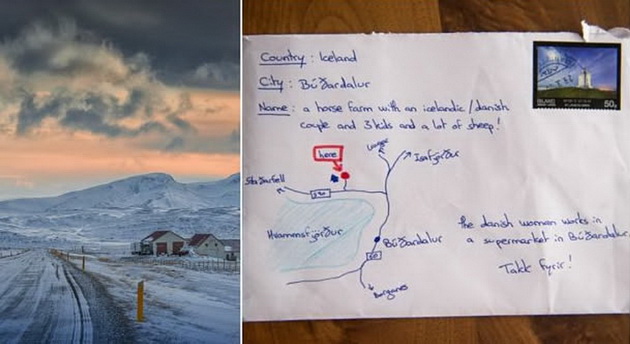 Country : Iceland
City : Búðardalur
Name : a horse farm with an icelandic/danish
couple and 3 kids and a lot of sheep!
here
Ísafjörður
590
Hvammsfjörður
Búðardalur
60
Borganes
the danish woman works in
a supermarket in Búðardalur.
Takk fyrir!
ÍSLAND
50g